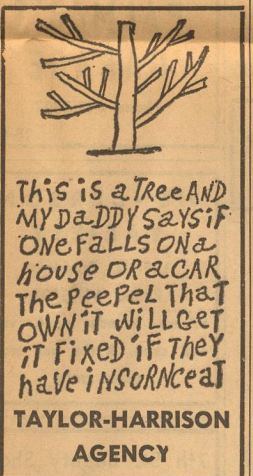 This is a TRee AND
MY DaDDY SaYS iF
ONe FaLLS ON a
house OR a CAR
The PeePeL ThaT
OWN iT WiLL GeT
iT FiXeD iF TheY
haVe iNSURNCe aT
TAYLOR-HARRISON
AGENCY